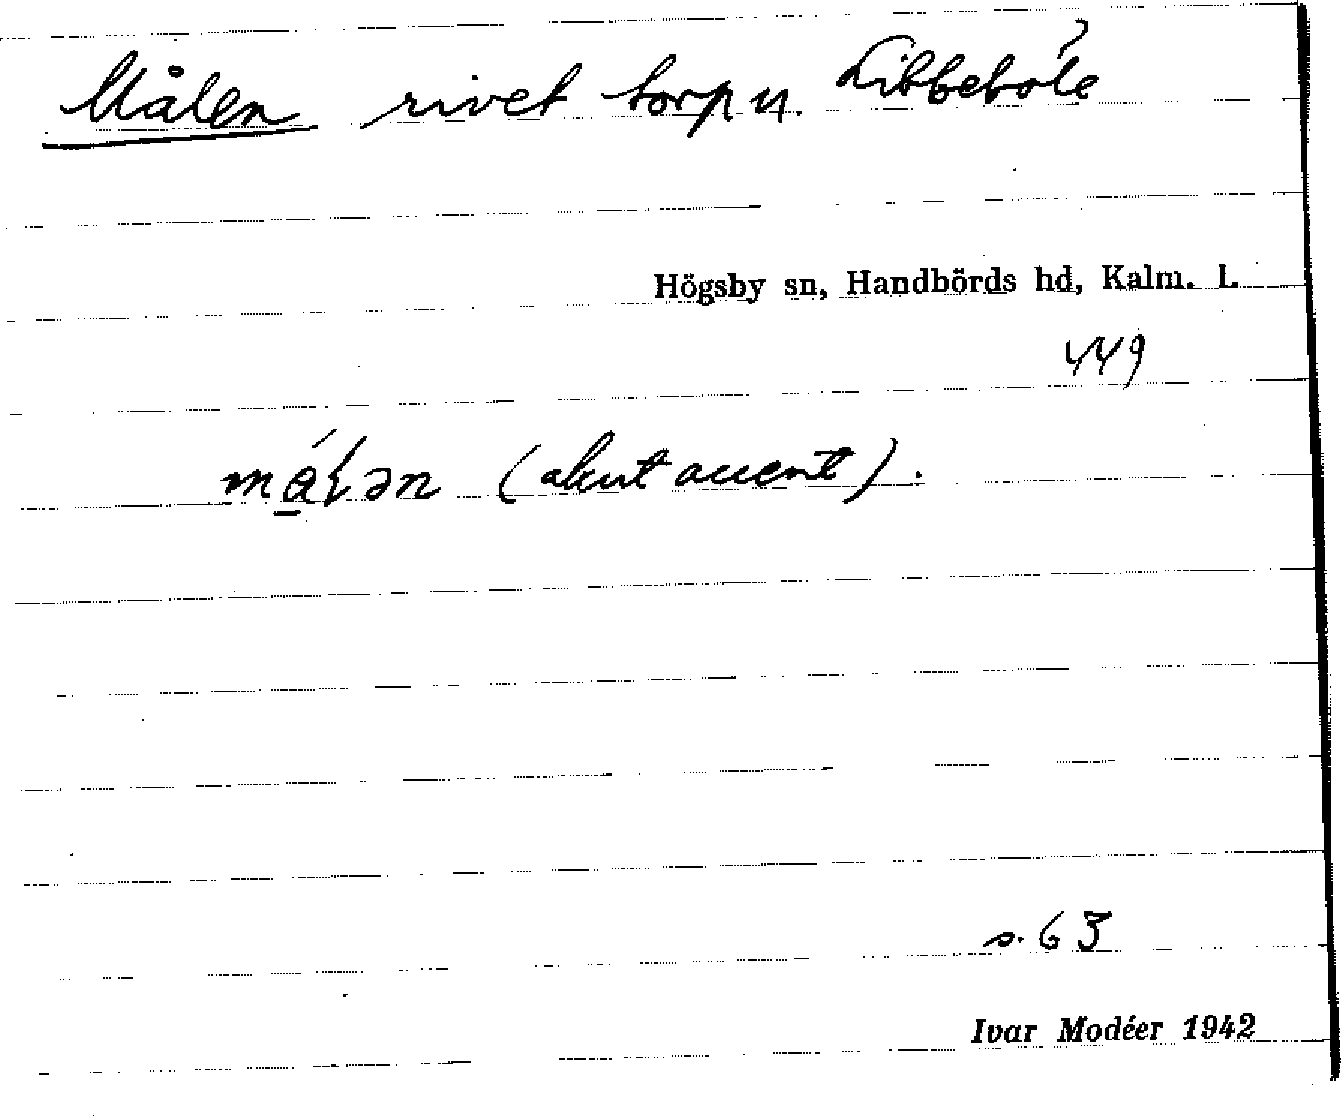 Målen rivet torp u. Libbeböle
Högsby sn, Handbörds hd, Kalm. l.
449
(akut accent).
s. 63
Ivar Modéer 1942